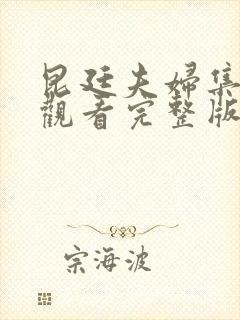 昆廷夫婦集
觀看完整版
宗海波